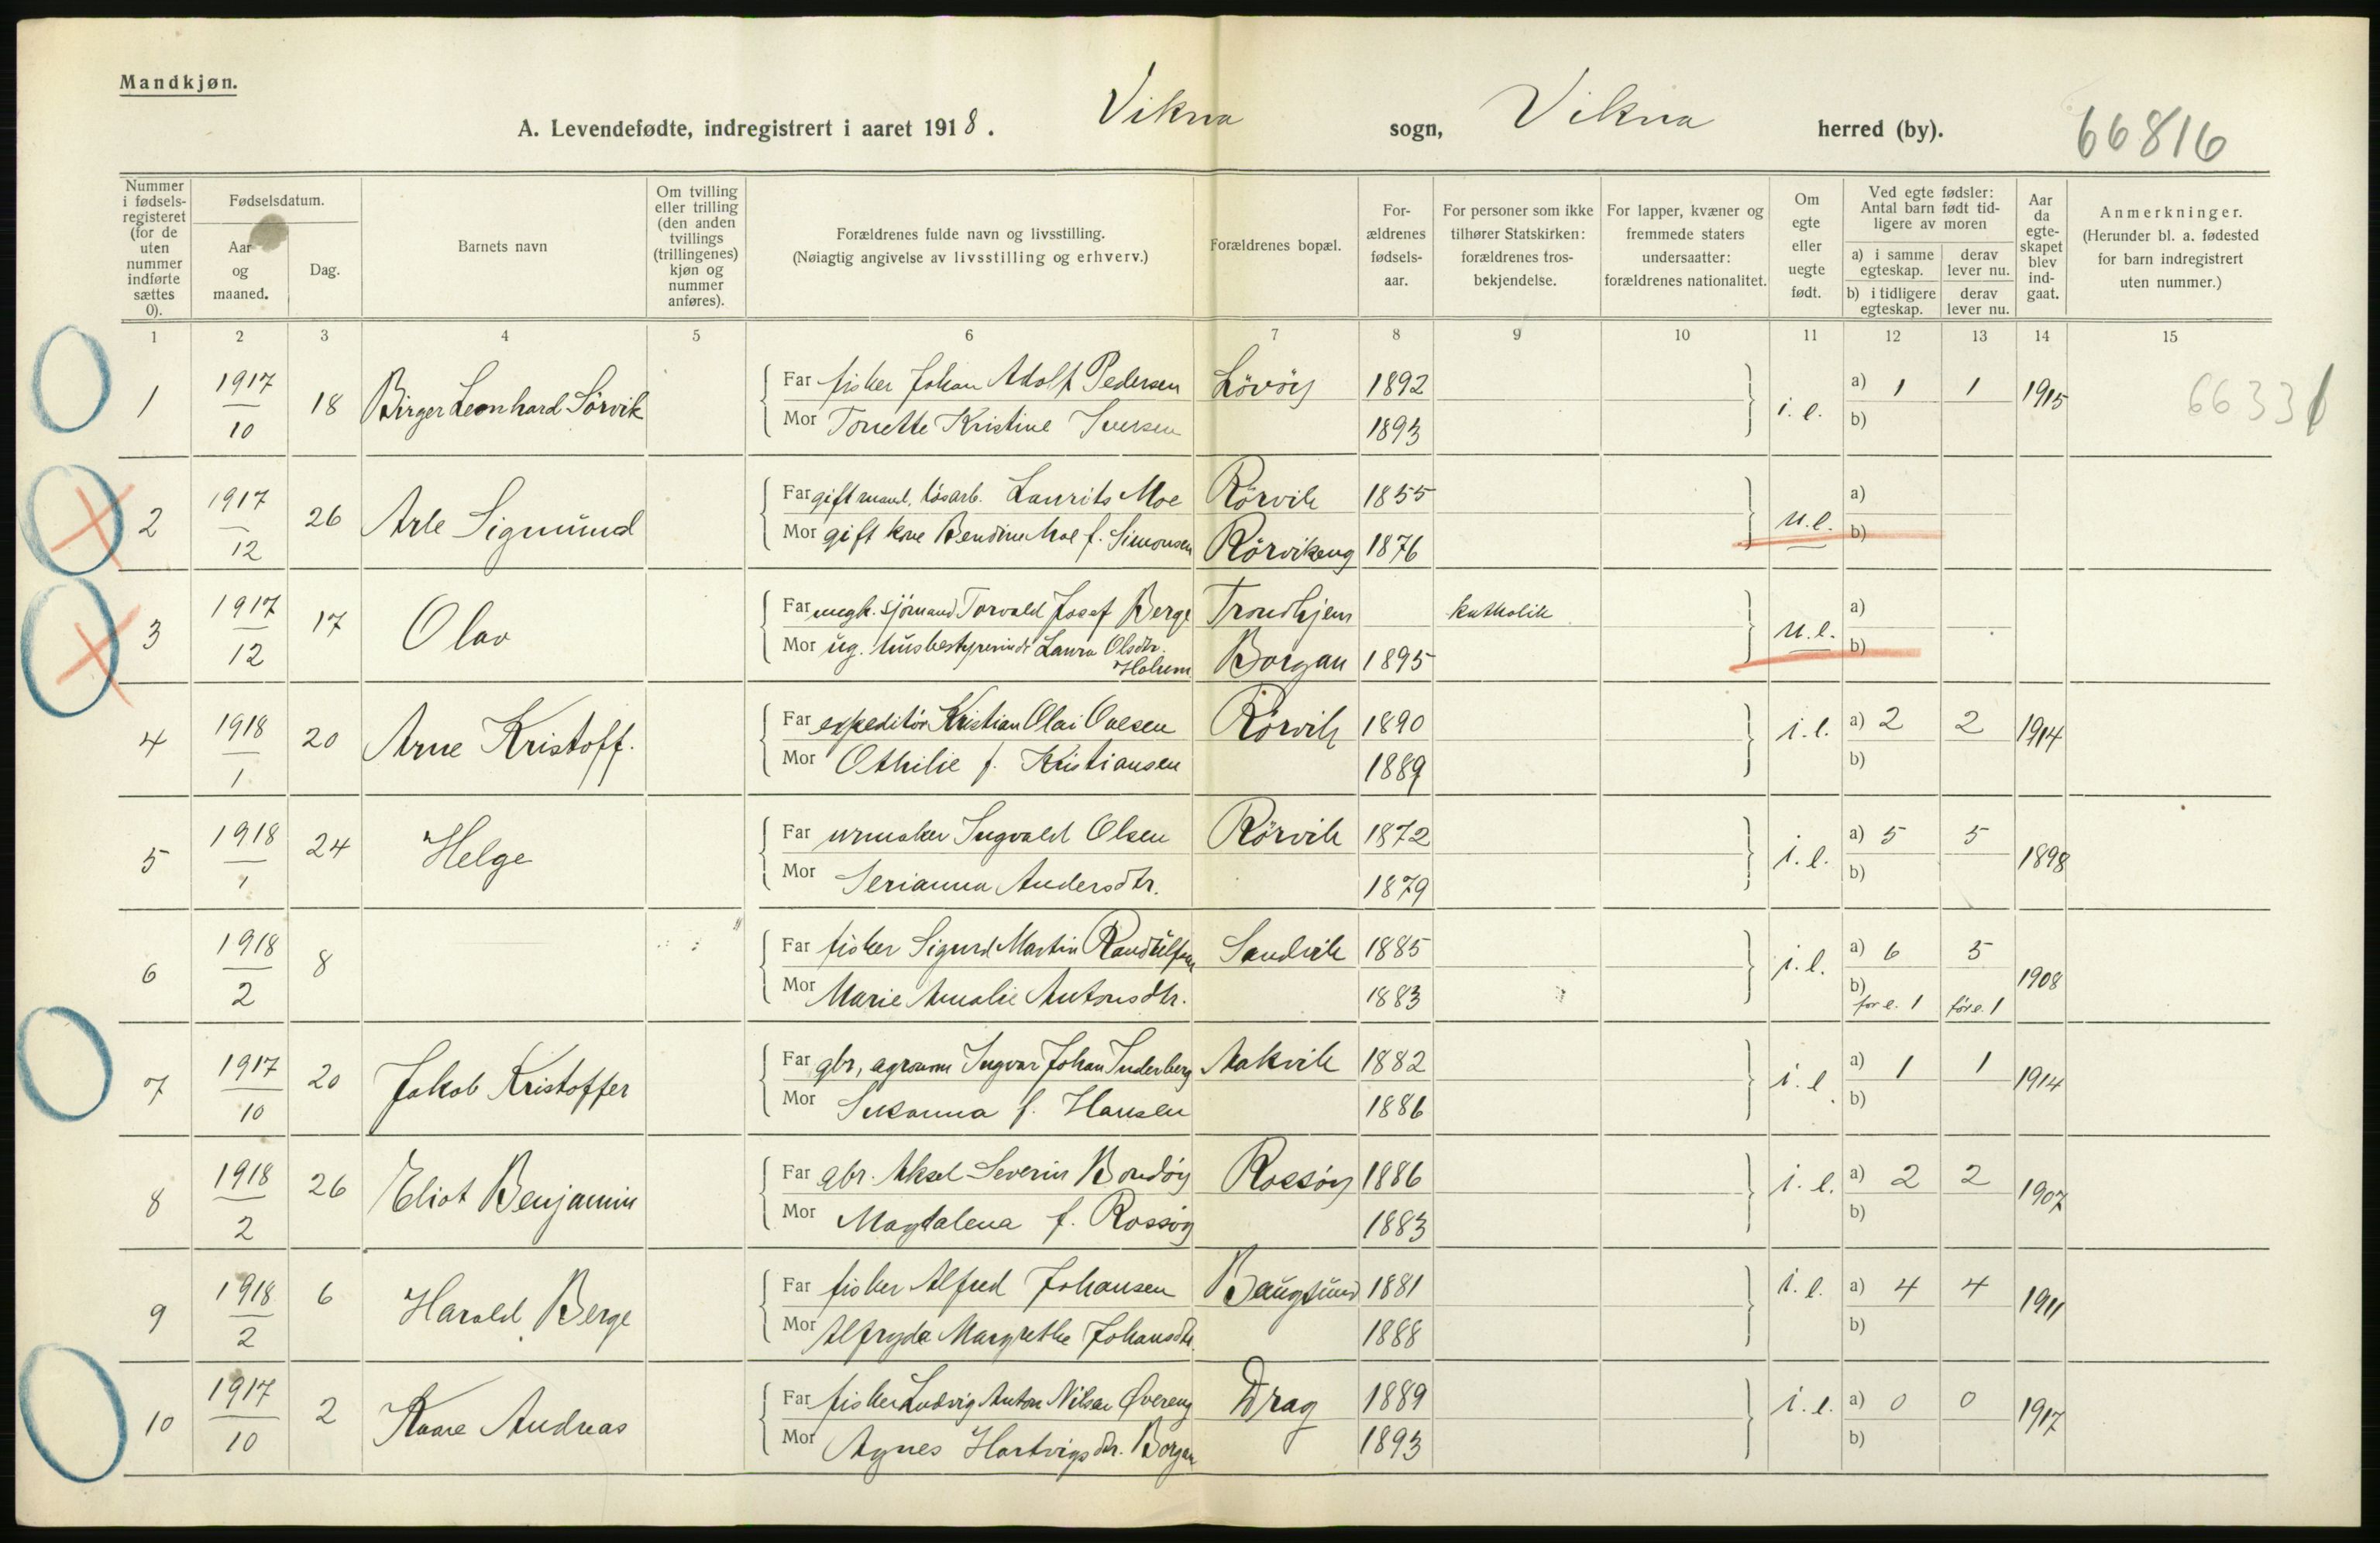 Mandkjøn.
A. Levendefødte, indregistrert i aaret 1918. Vikna sogn, Vikna herred (by). 66816
Nummer i fødsels-registeret (for de uten nummer indførte sættes 0).
Fødselsdatum.
Aar og maaned.
Dag.
Barnets navn
Om tvilling eller trilling (den anden tvillings (trillingenes) kjøn og nummer anføres).
Forældrenes fulde navn og livsstilling.
(Nøiagtig angivelse av livsstilling og erhverv.)
Forældrenes bopæl.
For-ældrenes fødsels-aar.
For personer som ikke tilhører Statskirken: forældrenes tros-bekjendelse.
For lapper, kvæner og fremmede staters undersaatter: forældrenes nationalitet.
Om egte eller uegte født.
Ved egte fødsler: Antal barn født tid-ligere av moren
a) i samme egteskap. derav lever nu.
b) i tidligere egteskap. derav lever nu.
Aar da egte-skapet blev ind-gaat.
Anmerkninger.
(Herunder bl. a. fødested for barn indregistrert uten nummer.)
1 2 3 4 5 6 7 8 9 10 11 12 13 14 15
1 1917/10 18 Birger Leonhard Sörvik Far fisker Johan Adolf Pedersen Lövöy 1892 i.e. a) 1 1 1915 66331
Mor Tonette Kristine Iversen 1893 b)
2 1917/12 26 Arle Sigmund Far gift mand, løsarb. Laurits Moe Rörvik 1855 u.e. a)
Mor gift kone Bendine Moe f. Simonsen Rörvikeng 1876 b)
3 1917/12 17 Olav Far ungk. sjömand Torvald Josef Berge Trondhjem katholik u.e. a)
Mor ug. husbestyrerinde Laura Olsdtr. Holum Borgan 1895 b)
4 1918/1 20 Arne Kristoff. Far expeditör Kristian Olai Ovesen Rörvik 1890 i.e. a) 2 2 1914
Mor Othilie f. Kristiansen 1889 b)
5 1918/1 24 Helge Far urmaker Ingvald Olsen Rörvik 1872 i.e. a) 5 5 1898
Mor Serianna Andersdtr. 1879 b)
6 1918/2 8 Far fisker Sigurd Martin Randulfsen Sandvik 1885 i.e. a) 6 5 1908
Mor Marie Amalie Antonsdtr. 1883 b) för e. 1 för e. 1
7 1917/10 20 Jakob Kristoffer Far gbr, agronom Ingvar Johan Inderberg Makvik 1882 i.e. a) 1 1 1914
Mor Susanna f. Hansen 1886 b)
8 1918/2 26 Eliot Benjamin Far gbr. Aksel Severin Bondöy Rossöy 1886 i.e. a) 2 2 1907
Mor Magdalena f. Rossöy 1883 b)
9 1918/2 6 Harald Berge Far fisker Alfred Johansen Baugsund 1881 i.e. a) 4 4 1911
Mor Alfryda Margrethe Johansdtr. 1888 b)
10 1917/10 2 Kaare Andreas Far fisker Ludvig Anton Nilsen Øvereng Drag 1889 i.e. a) 0 0 1917
Mor Agnes Hartvigsdtr. Borgan 1893 b)